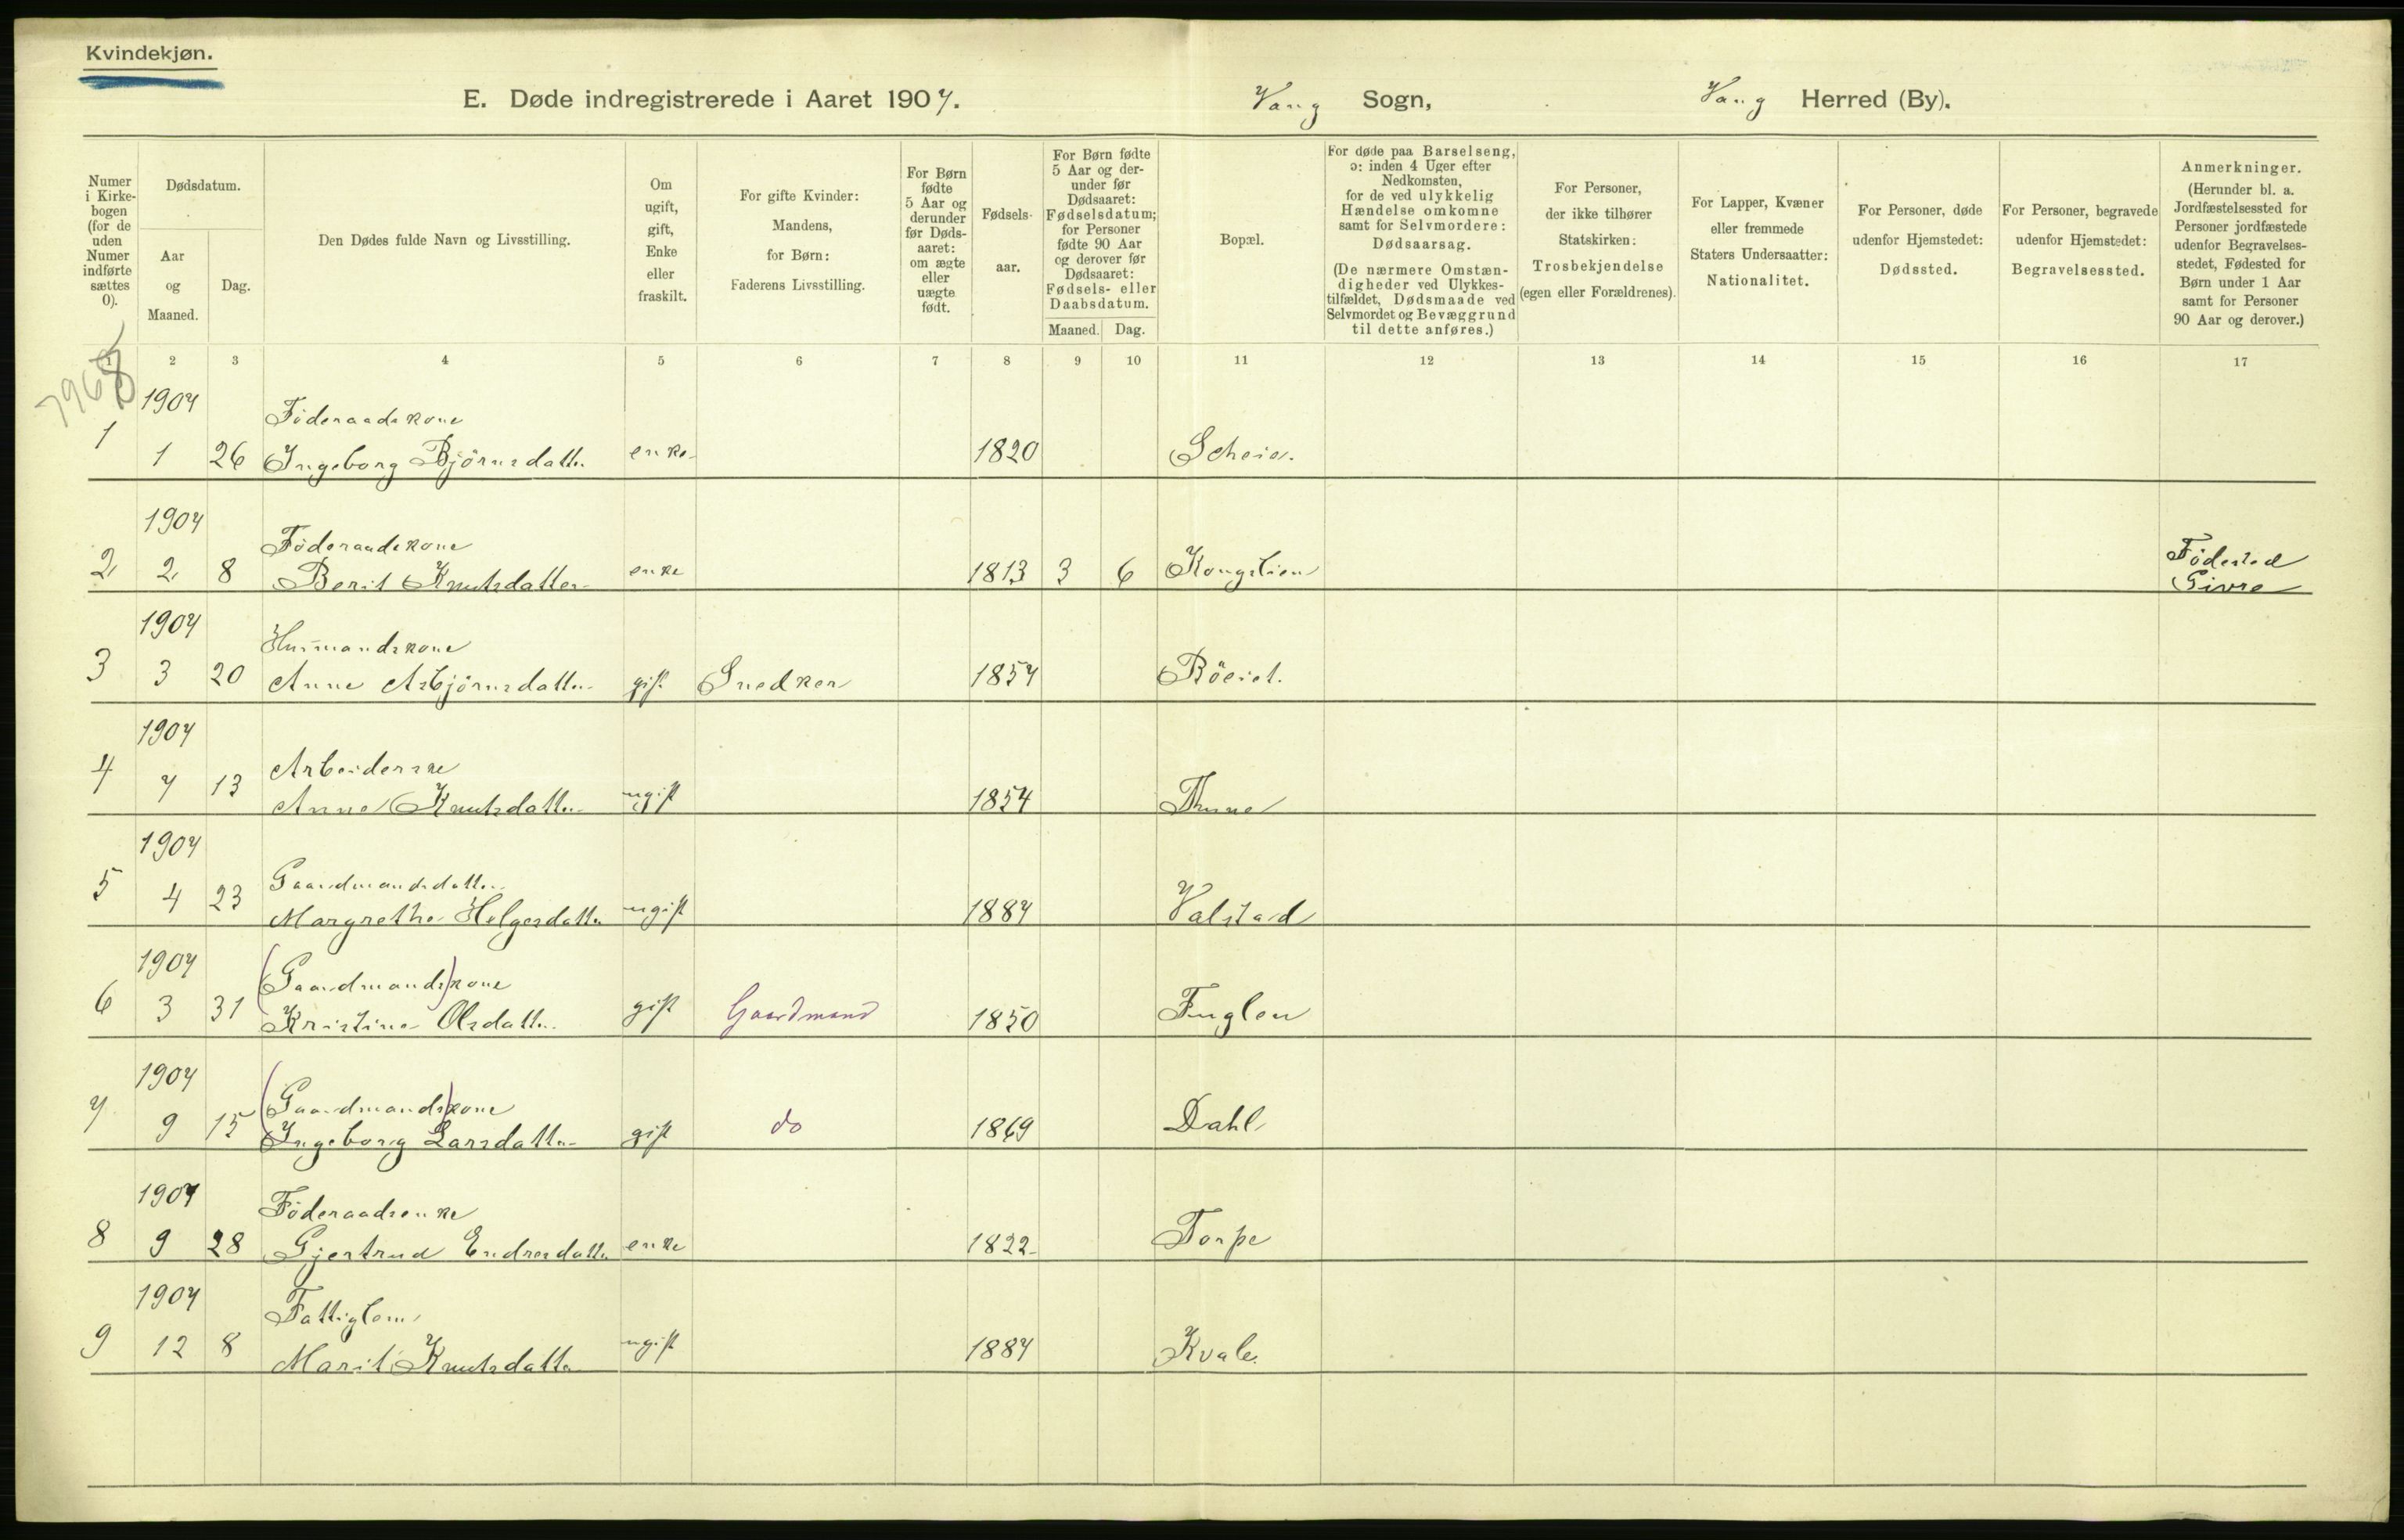 Kvindekjøn.
E. Døde indregistrerede i Aaret 1907. Vang Sogn, Vang Herred (By).
Numer i Kirkebogen (for de uden Numer indførte sættes 0).
Dødsdatum.
Aar og Maaned.
Dag.
Den Dødes fulde Navn og Livsstilling.
Om ugift, gift, Enke eller fraskilt.
For gifte Kvinder: Mandens, for Børn: Faderens Livsstilling.
For Børn fødte 5 Aar og derunder før Døds-aaret: om ægte eller uægte født.
Fødsels-aar.
For Børn fødte 5 Aar og derunder før Dødsaaret: Fødselsdatum; for Personer fødte 90 Aar og derover før Dødsaaret: Fødsels- eller Daabsdatum.
Maaned. Dag.
Bopæl.
For døde paa Barselseng, ɔ: inden 4 Uger efter Nedkomsten, for de ved ulykkelig Hændelse omkomne samt for Selvmordere: Dødsaarsag. (De nærmere Omstændigheder ved Ulykkestilfældet, Dødsmaade ved Selvmordet og Bevæggrund til dette anføres.)
For Personer, der ikke tilhører Statskirken: Trosbekjendelse (egen eller Forældrenes).
For Lapper, Kvæner eller fremmede Staters Undersaatter: Nationalitet.
For Personer, døde udenfor Hjemstedet: Dødssted.
For Personer, begravede udenfor Hjemstedet: Begravelsessted.
Anmerkninger. (Herunder bl. a. Jordfæstelsessted for Personer jordfæstede udenfor Begravelsesstedet, Fødested for Børn under 1 Aar samt for Personer 90 Aar og derover.)
1 2 3 4 5 6 7 8 9 10 11 12 13 14 15 16 17
7968
1907 Föderaadskone
1 1 26 Ingeborg Björnsdatter enke 1820 Scheie.
1907 Föderaadskone Födested
2 2 8 Berit Knutsdatter enke 1813 3 6 Kongslien Givre
1907 Husmandskone
3 3 20 Anne Asbjörnsdatter gift Snedker 1857 Röeiet.
1907 Arbeiderske
4 7 13 Anne Knutsdatter ugift 1857 Thune
1907 Gaardmandsdatter
5 4 23 Margrethe Helgesdatter ugift 1887 Valstad
1907 (Gaardmands)kone
6 3 31 Kristine Olsdatter gift Gaardmand 1850 Fuglen
1907 (Gaardmands)kone
7 9 15 Ingeborg Larsdatter gift do 1869 Dahl
1907 Föderaadsenke
8 9 28 Gjertrud Endresdatter enke 1822 Torpe
1907 Fattiglem
9 12 8 Marit Knutsdatter ugift 1887 Kvale